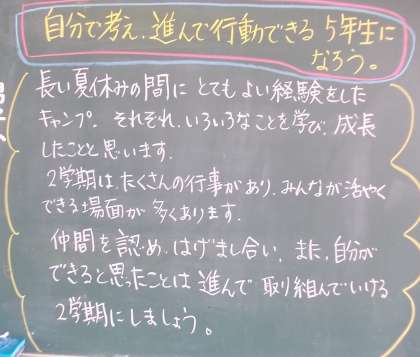 自分で考え、進んで行動できる5年生に
なろう。
長い夏休みの間に とてもよい経験をした
キャンプ。それぞれ、いろいろなことを学び、成長
したことと思います。
2学期は、たくさんの行事があり、みんなが活やく
できる場面が多くあります。
仲間を認め、はげまし合い、また、自分が
できると思ったことは進んで取り組んでいける
2学期にしましょう。